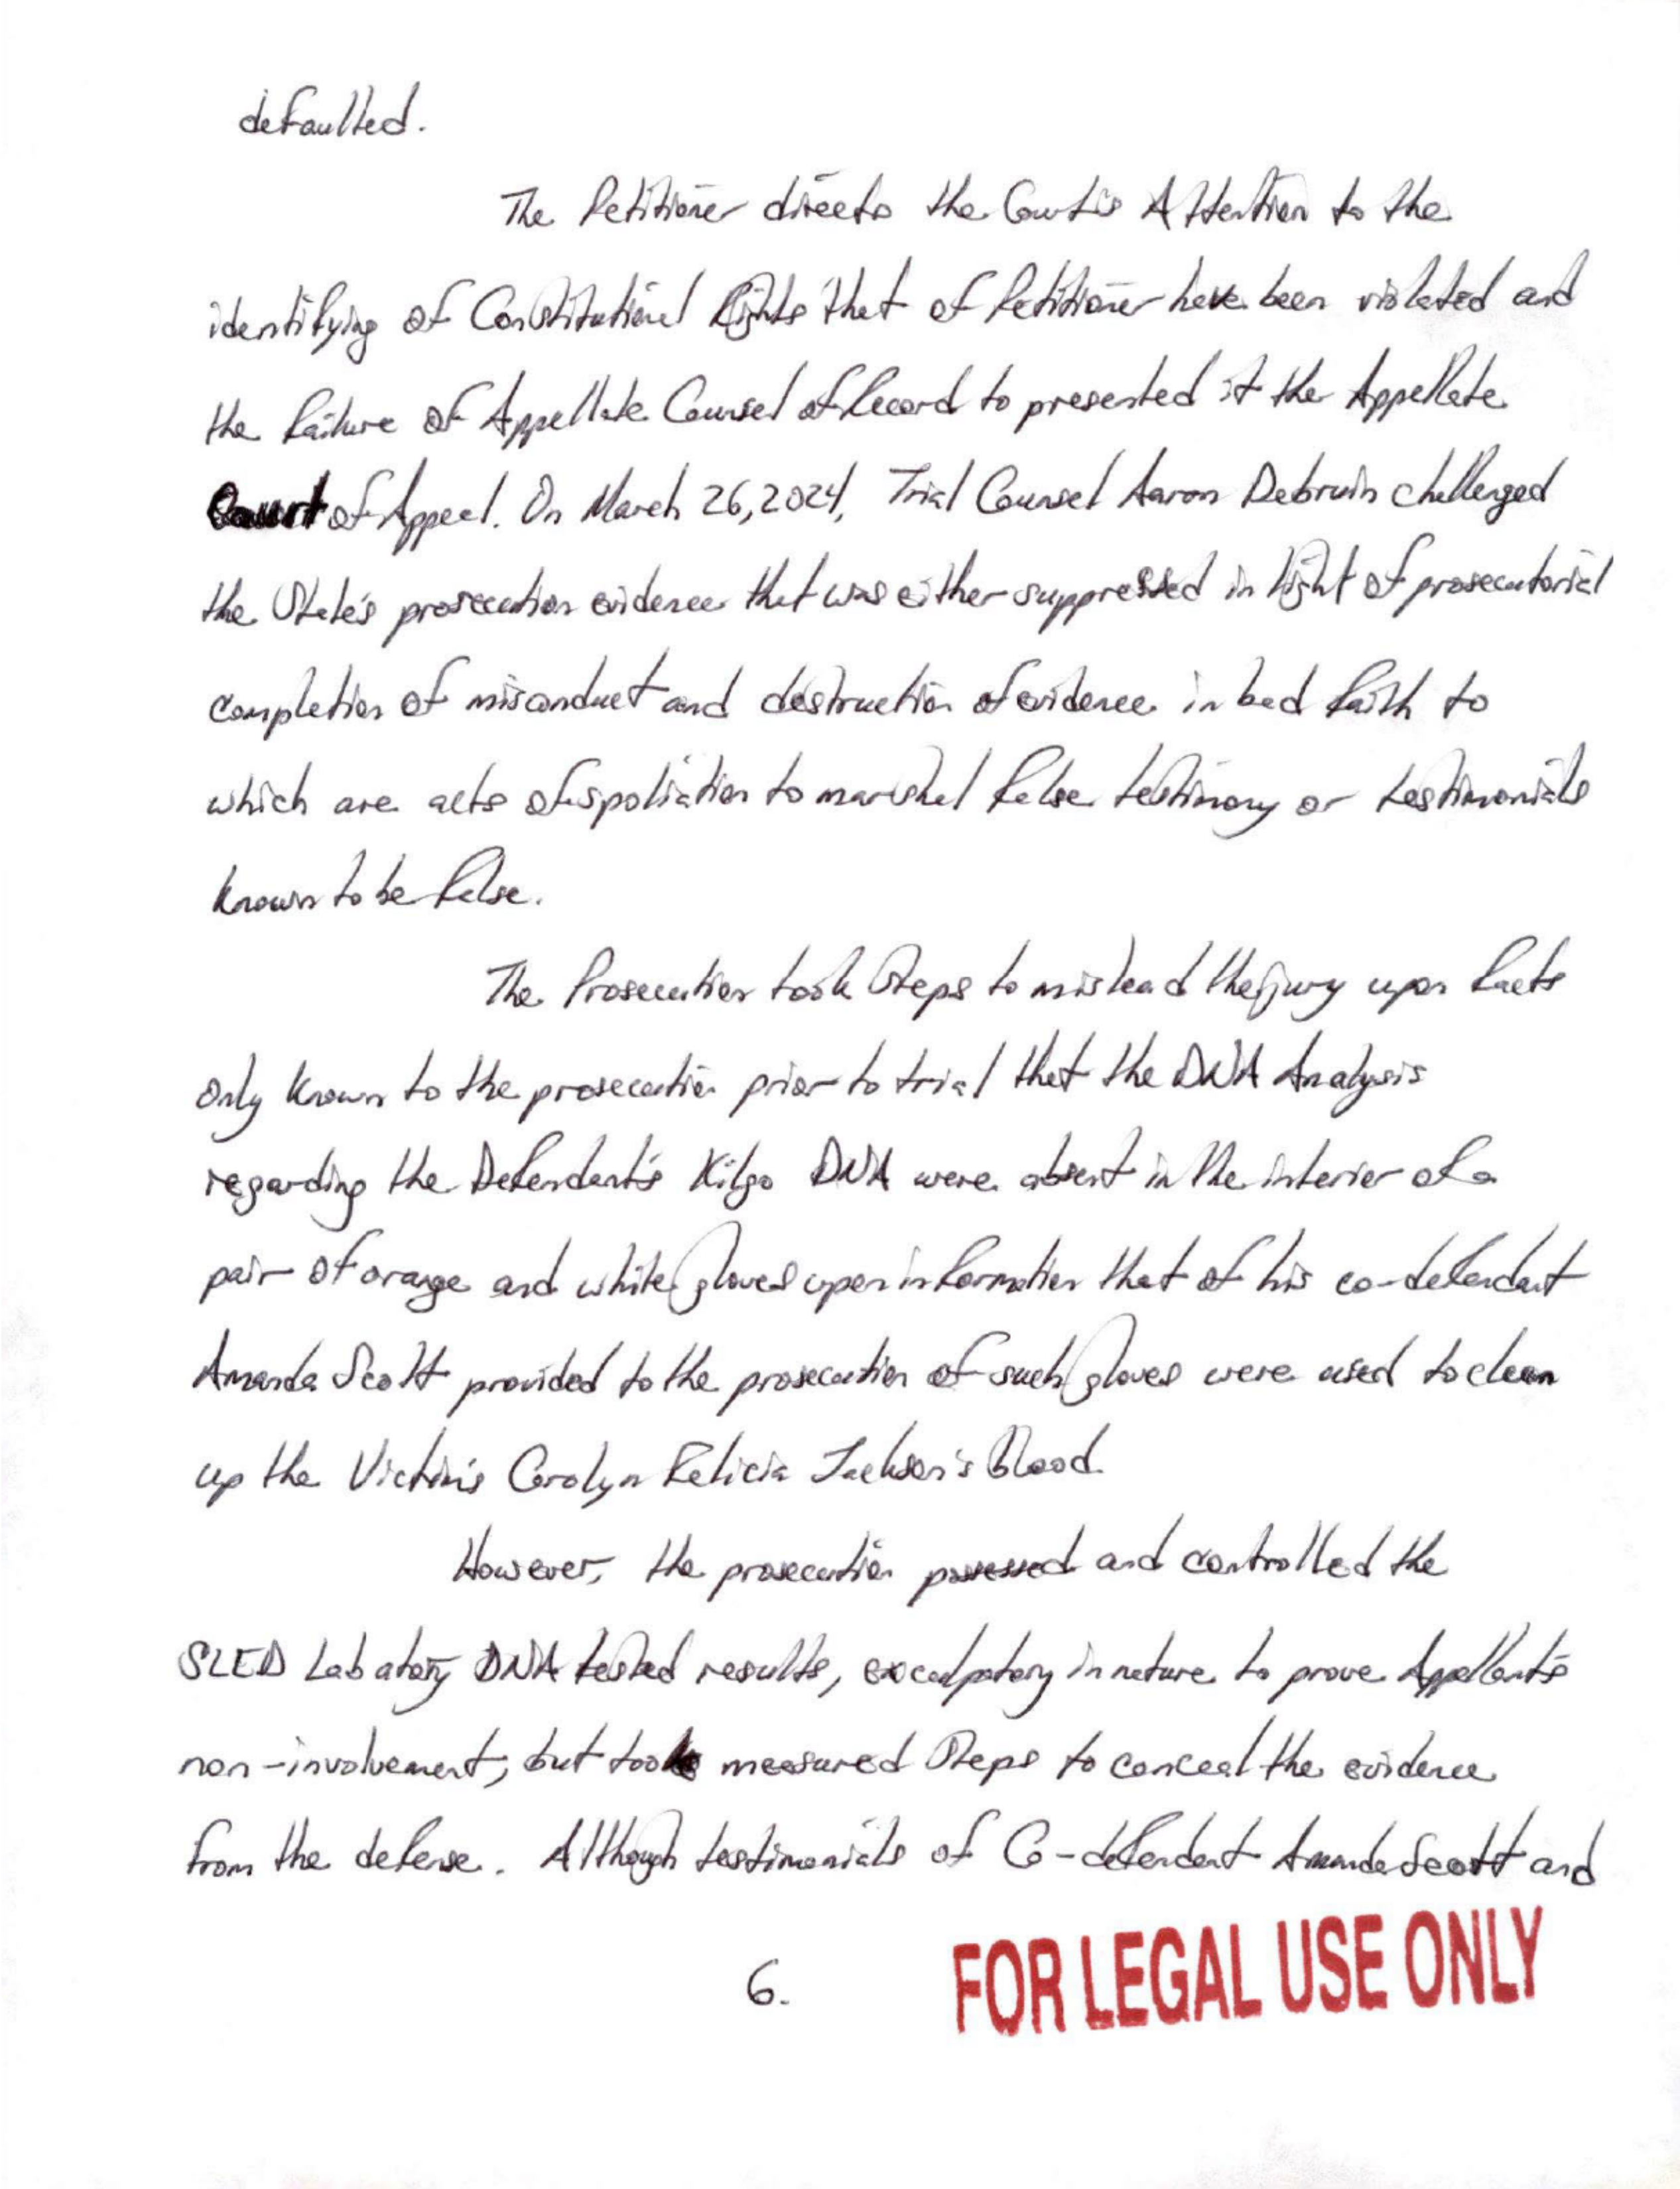 defaulted.
The Petitioner directs the Court's Attention to the
identifying of Constitutional Rights that of Petitioner have been violated and
the failure of Appellate Counsel of Record to presented it the Appellate
Court of Appeal. On March 26, 2024, Trial Counsel Aaron Debruin challenged
the State's prosecution evidence that was either suppressed in light of prosecutorial
completion of misconduct and destruction of evidence in bad faith to
which are acts of spoliation to marshal false testimony or testimonials
known to be false.
The Prosecution took Steps to mislead the jury upon facts
only known to the prosecution prior to trial that the DNA Analysis
regarding the Defendant's Kilgo DNA were absent in the interior of a
pair of orange and white gloves upon information that of his co-defendant
Amanda Scott provided to the prosecution of such gloves were used to clean
up the Victim's Carolyn Felicia Jackson's Blood.
However, the prosecution possessed and controlled the
SLED Labatory DNA tested results, exculpatory in nature to prove Appellant's
non-involvement, but took measured Steps to conceal the evidence
from the defense. Although testimonials of Co-defendant Amanda Scott and
6.
FOR LEGAL USE ONLY